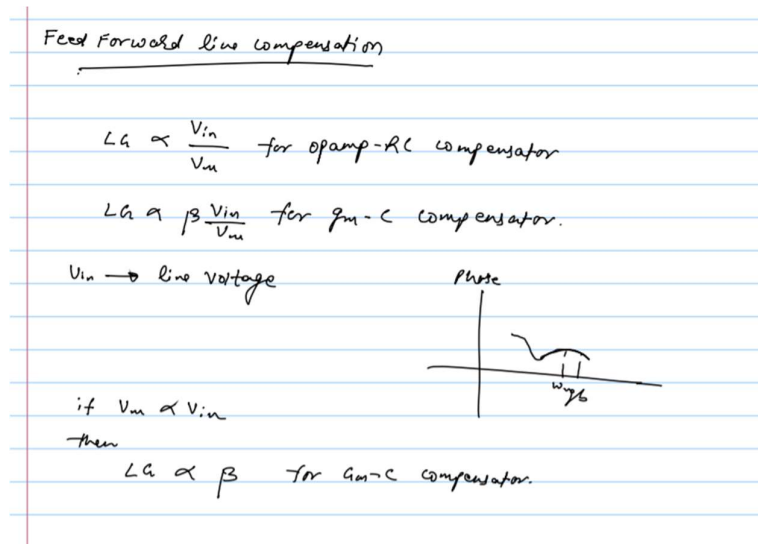 Feed Forward line compensation
LG ∝ Vin/Vm for opamp-RC compensator
LG ∝ β Vin/Vm for gm-C compensator.
Vin → line voltage
Phase
ωugb
if Vm ∝ Vin
then
LG ∝ β for Gm-C compensator.